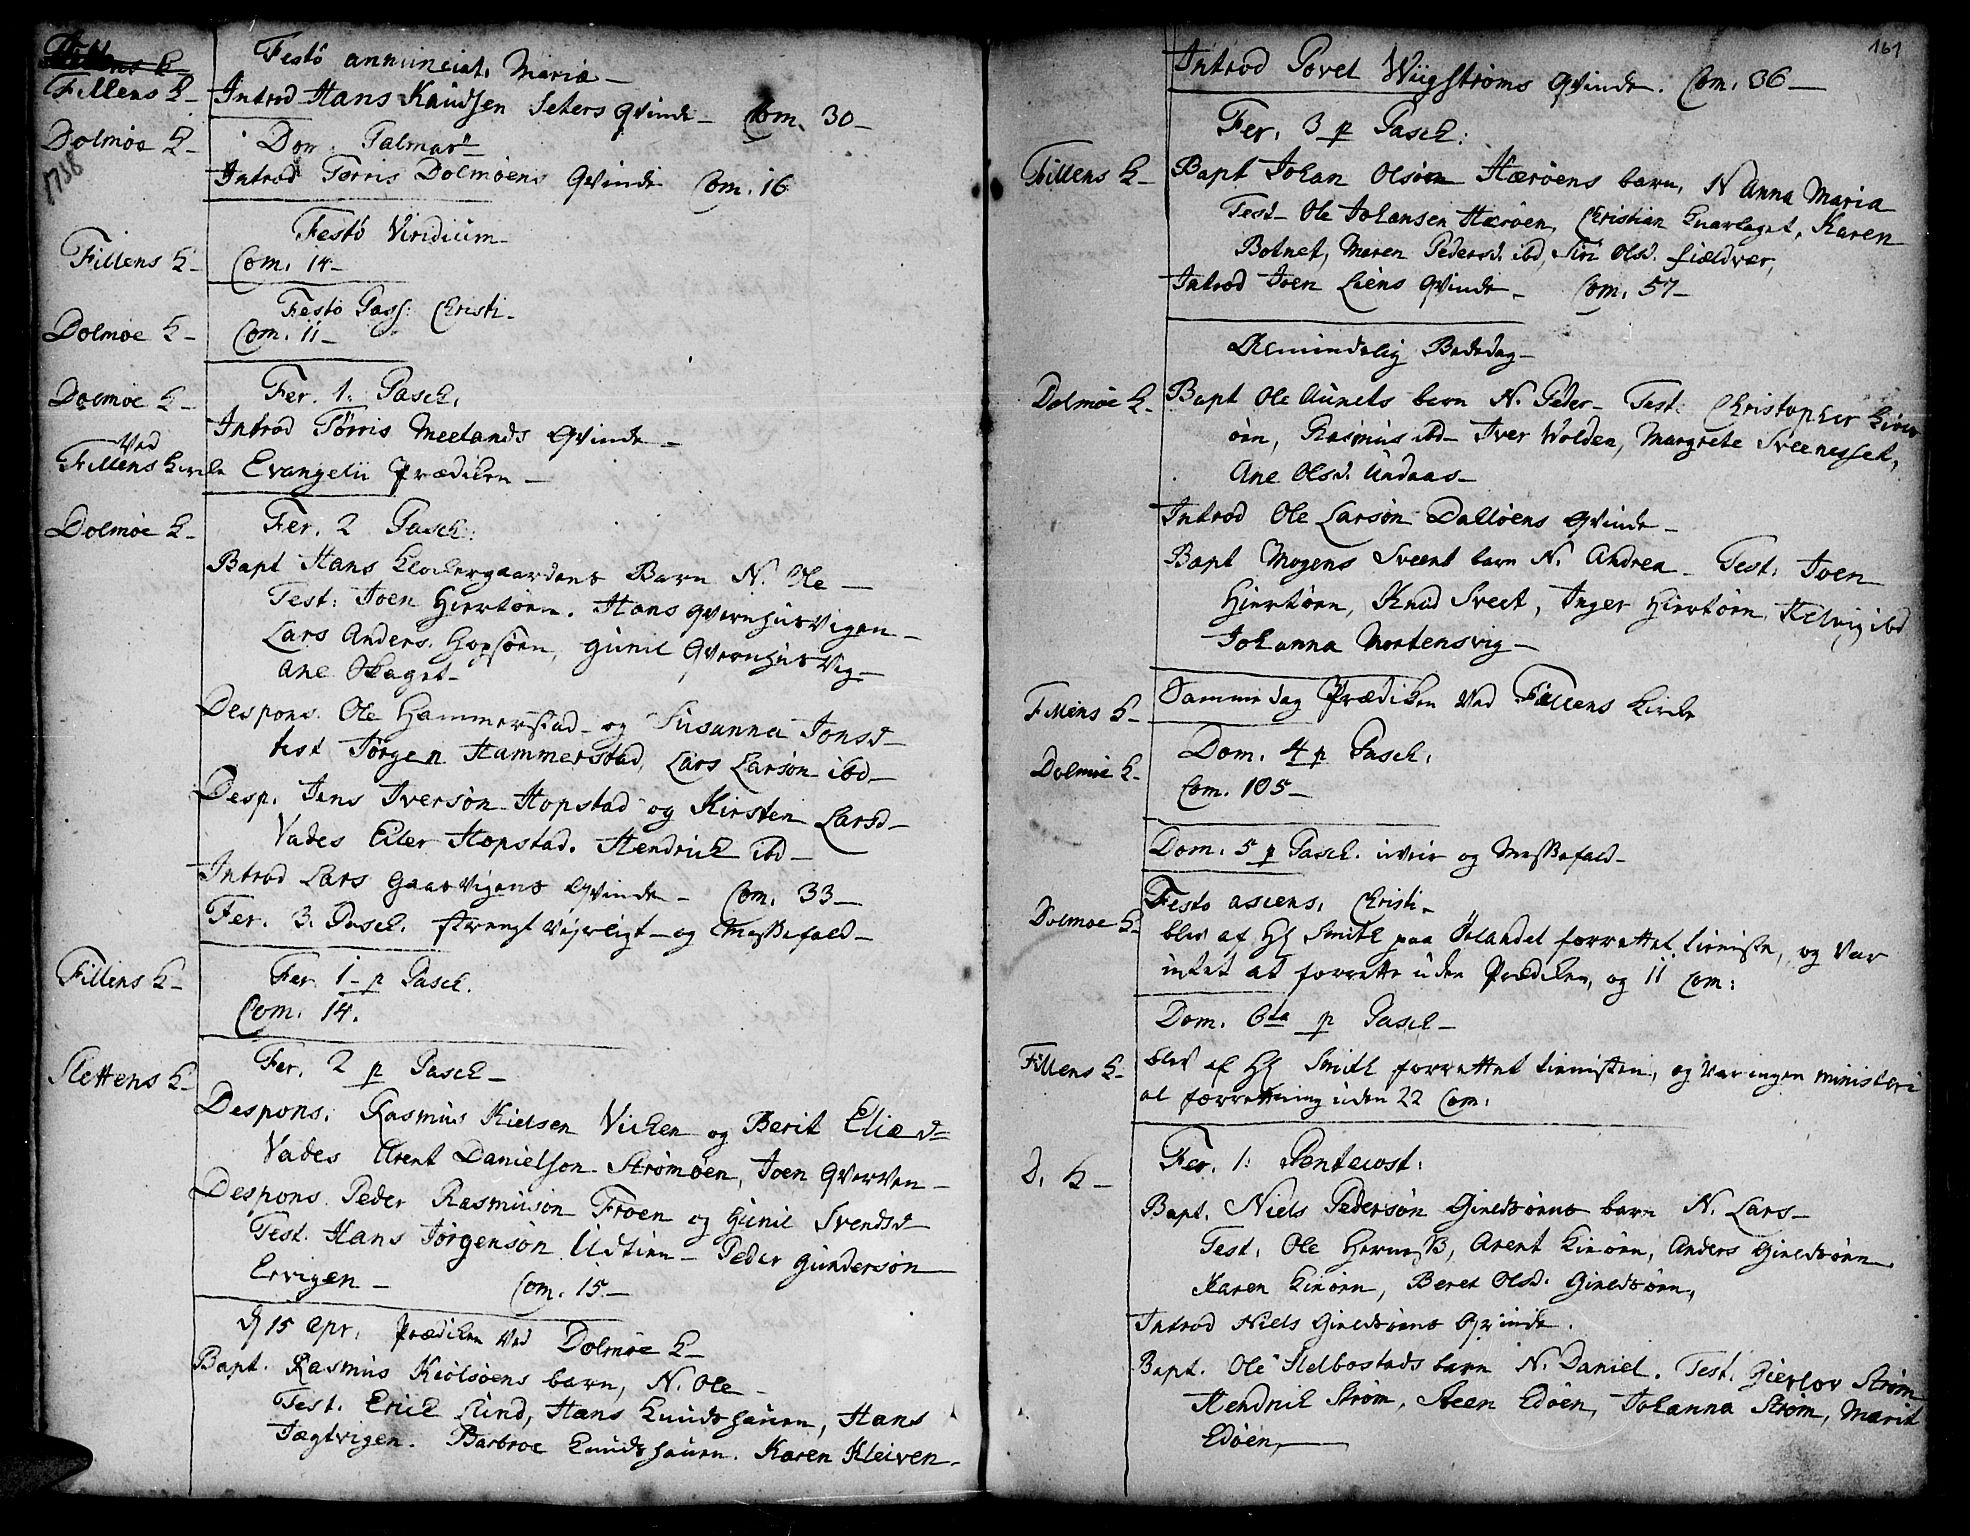 Festo annunciat. Maria –
Fillens K – Introd Hans Knudsen Seters qvinde – Com. 30 –
Dolmøe K – Dom. Palmar
1758
Introd Torris Dolmøens Qvinde Com. 16
Festo Viridium –
Fillens K – Com. 14 –
Festo Pass: Christi –
Dolmøe K – Com. 11 –
Dolmøe K – Fer. 1. Pasch.
Introd Tørris Meelands Qvinde –
Ved
Fillens Kirche Evangelii Prædiken –
Dolmøe K – Fer. 2 Pasch:
Bapt Hans Klockergaardens Barn N. Ole –
Test: Joen Hiertøen. Hans QvernhusVigen –
Lars Anders. Hopsøen, Gunil QvernhusVig –
Ane Skaget –
Despons. Ole Hammerstad – og Susanna Jonsd –
test Jørgen Hammerstad, Lars Larsøn ibd –
Desp. Jens Iversøn Hopstad og Kirsten Larsd –
Vades Eiler Hopstad. Hendrich ibd –
Introd Lars GaasVigens Qvinde – Com. 33 –
Fer. 3. Pasch. strengt Vejrligt – og Messefald –
Fillens K – Fer. 1 – p Pasch.
Com. 14.
Slettens K – Fer. 2 p Pasch –
Despons. Rasmus Nielsen Vichen og Berit Eliæd
Vades Arent Danielson Strømøen, Joen Qverven –
Despons. Peder Rasmusøn Froen og Gunil Svendsd
Test. Hans Jørgensøn Udtien – Peder Gundersøn
Ervigen – Com. 15 –
15 Apr. Prædiken Ved Dolmøe K –
Bapt. Rasmus Kiølsøens barn, N. Ole –
Test. Erich Lund, Hans Knudshauen, Hans
Jægtvigen. Barbroe Knudshauen. Karen Kleiven –
161
Introd Povel Wiigstrøms Qvinde. Com. 36 –
Fer. 3 p Pasch:
Fillens K – Bapt Johan Olsøn Hærøens barn, N Anna Maria
Test – Ole Johansen Hærøen, Christian Kvarlaget, Karen
Botnet, Maren Pedersd. ibd, Siri Olsd. Fieldvær,
Introd Joen Liens Qvinde – Com. 57 –
Almindelig Bededag –
Dolmøe K – Bapt Ole Aunets barn N. Peder – Test. Christopher Kirk
øen, Rasmus ibd – Iver Wolden, Margrete Sveenesset,
Ane Olsd. Undaas –
Introd Ole Larsøn Dalløens Qvinde –
Bapt Mogens Sveent barn N. Andrea – Test: Joen
Hiertøen, Knud Sveet, Inger Hiertøen, Helvig ibd
Johanna Mortensvig –
Fillens K – Samme dag Prædiken Ved Fillens Kirche
Dolmøe K – Dom. 4 p Pasch.
Com. 105 –
Dom. 5 p Pasch. uveir og Messefald –
Festo ascens. Christi –
Dolmøe K – blev af Hr Smith paa Ørlandet forrettet tienisten, og Var
intet at forrette uden Prædiken, og 11 Com:
Dom. 6ta p Pasch –
Fillens K – blev af Hr Smith forrettet tienisten, og Var ingen ministeri
al forrettning uden 22 Com.
D. K – Fer. 1: Pentecost:
Bapt. Niels Pedersøn Gieldsøens barn N. Lars –
Test. Ole Hernes, Arent Kirøen, Anders Gieldsøen
Karen Kirøen, Beret Olsd. Gieldsøen,
Introd Niels Gieldsøens Qvinde.
Bapt. Ole Selbostads barn N. Daniel. Test. Gierlov Strøm
Hendrich Strøm, Steen Edøen, Johanna Strøm, Marit
Edøen, –